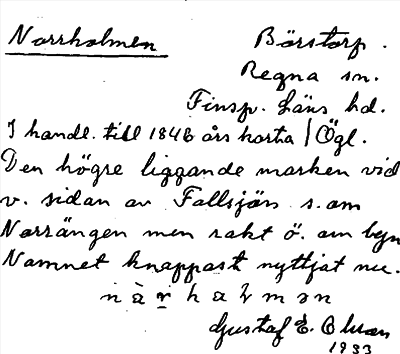 Norrholmen Börstorp.
Regna sn.
Finsp. läns hd.
I handl. till 1846 års karta / Ögl.
Den högre liggande marken vid
v. sidan av Fallsjön s.om
Norrängen men rakt ö. om byn
Namnet knappast nyttjat nu.
Gustaf E. Olsson
1933